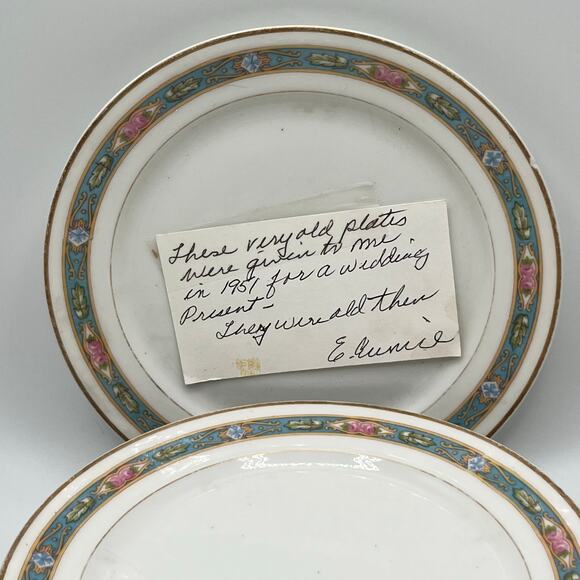 These very old plates
were given to me
in 1951 for a wedding
Present -
They were old then
E.